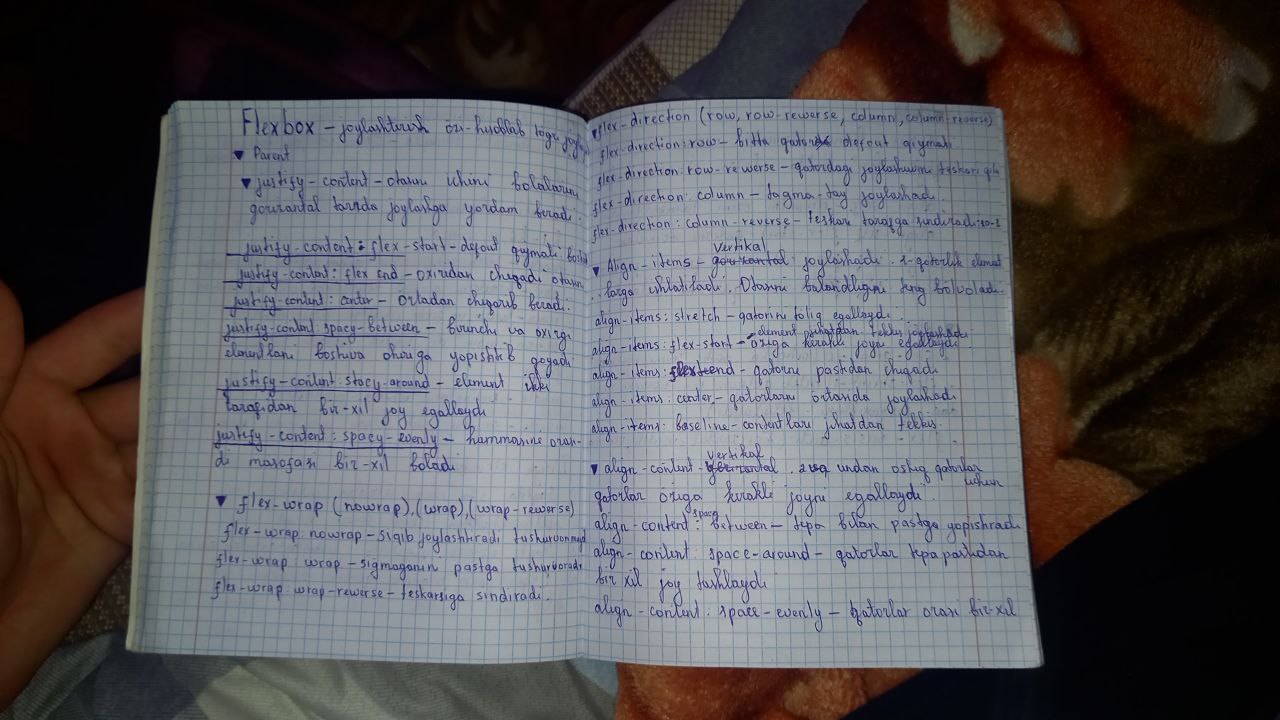 Flexbox – joylashtirish ozi hisoblab togri joylay
▼ Parent
▼ justify-content – otasini ichini bolalarini
gorizantal tarzda joylashga yordam beradi.
justify-content: flex-start – defout qiymati boshi
justify-content: flex end – oxiridan chiqadi otasini
justify-content: center – ortadan chiqarib beradi.
justify-content spacy-between – birinchi va oxirgi
elementlani boshiva ohiriga yopishtib qoyadi
justify-content. stacy-around – element ikki
tarafidan bir-xil joy egallaydi
justify-content: spacy-evenly – hammasini orasi-
di masofasi bir-xil boladi
▼ flex-wrap (nowrap),(wrap),(wrap-rewerse)
flex-wrap: nowrap – siqib joylashtiradi
flex-wrap: wrap – sigmaganini pastga tushurvoradi
flex-wrap: wrap-rewerse – teskarisiga sindiradi.
▼ flex-direction (row, row-rewerse, column, column-reverse)
flex-direction: row – bitta qator defout qiymati
flex-direction: row-rewerse – qatordagi joylashuvini teskari
flex-direction: column – tagma-tag joylashadi.
flex-direction: column-reverse – teskari tarafga sindiradi
vertikal
▼ Align-items – gorizantal joylashadi. 1-qatorlik element
larga ishlatiladi. Otasini balandligini teng bolvoladi.
align-items: stretch – qatorni toliq egallaydi.
element jihatdan tekkis joylashadi
align-items: flex-start – oziga kerakli joyni egallaydi
align-items: end – qatorni pastidan chiqadi
align-items: center – qatorlarni ortasida joylashadi
align-items: baseline – contentlari jihatdan tekkis.
vertikal
▼ align-content – 2 va undan oshiq qatorlar
uchun
qatorlar oziga kerakli joyni egallaydi.
space
align-content: between – tepa bilan pastga yopishradi
align-content: space-around – qatorlar tepa pastidan
bir xil joy tashlaydi
align-content: space-evenly – qatorlar orasi bir-xil